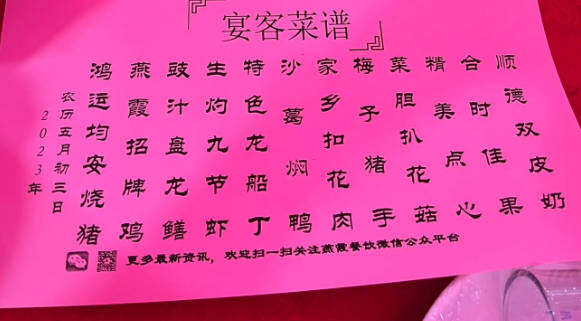 宴客菜谱
2023年
农历五月初三日
鸿运均安烧猪
燕霞招牌鸡
豉汁盘龙鳝
生灼九节虾
特色龙船丁
沙葛焖鸭
家乡扣花肉
梅子猪手
菜胆扒花菇
精美点心
合时佳果
顺德双皮奶
更多最新资讯，欢迎扫一扫关注燕霞餐饮微信公众平台